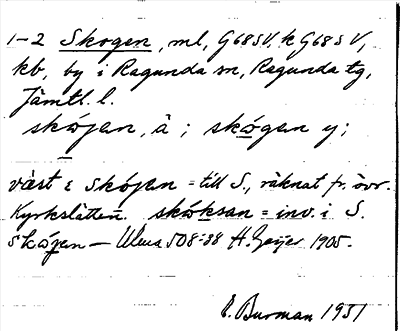 1-2 Skogen, ml, G68SV, k G68SV,
kb, by i Ragunda sn, Ragunda tg,
Jämtl. l.
skójen, ä ; skógen y;
väst i skójen = till S., räknat fr. övr.
Kyrkslätten. skóksan = inv. i S.
skógen — Ulma 508:38 H. Geijer 1905.
E. Burman 1931